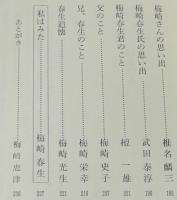 梅崎さんの思い出 椎名麟三
梅崎春生氏の思い出 武田泰淳
梅崎春生君のこと 檀一雄
父のこと 梅崎史子
兄、春生のこと 梅崎栄幸
春生追懐 梅崎光生 221
私はみた 梅崎春生 237
あとがき 梅崎恵津